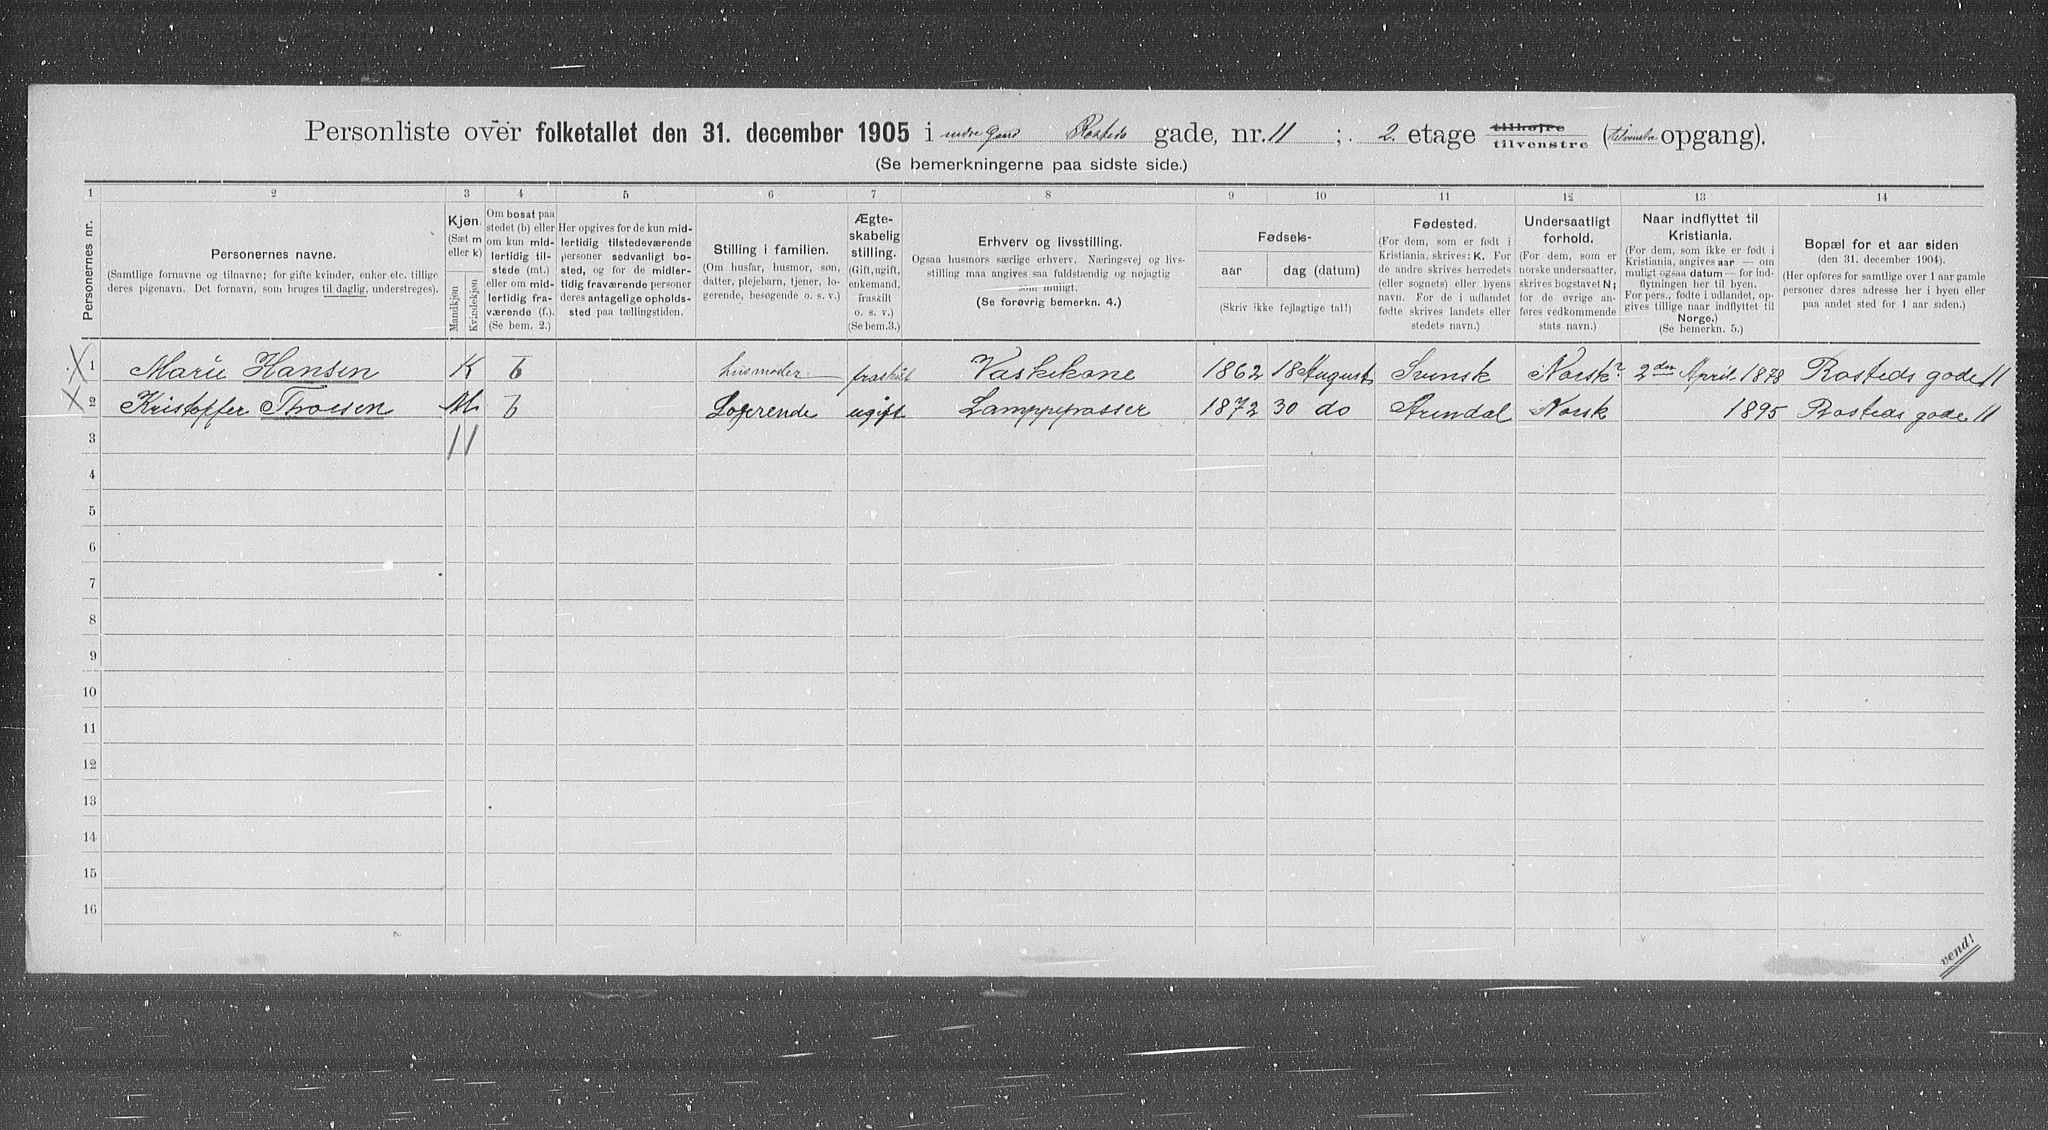 Personliste over folketallet den 31. december 1905 i indre Gaard Rosteds gade, nr. 11 ; 2. etage tilhøjre tilvenstre (tilvenstre opgang).
(Se bemerkningerne paa sidste side.)
1 2 3 4 5 6 7 8 9 10 11 12 13 14
Personernes nr.
Personernes navne.
(Samtlige fornavne og tilnavne; for gifte kvinder, enker etc. tillige
deres pigenavn. Det fornavn, som bruges til daglig, understreges).
Kjøn.
(Sæt m
eller k)
Mandkjøn
Kvindekjøn
Om bosat paa
stedet (b) eller
om kun mid-
lertidig til-
stede (mt.)
eller om mid-
lertidig fra-
værende (f.).
(Se bem. 2.)
Her opgives for de kun mid-
lertidig tilstedeværende
personer sedvanligt bo-
sted, og for de midler-
tidig fraværende personer
deres antagelige opholds-
sted paa tællingstiden.
Stilling i familien.
(Om husfar, husmor, søn,
datter, plejebarn, tjener, lo-
gerende, besøgende o. s. v.)
Ægte-
skabelig
stilling.
(Gift, ugift,
enkemand,
fraskilt
o. s. v.)
(Se bem.3.)
Erhverv og livsstilling.
Ogsaa husmors særlige erhverv. Næringsvej og livs-
stilling maa angives saa fuldstændig og nøjagtig
som muligt.
(Se forøvrig bemerkn. 4.)
Fødsels-
aar
dag (datum)
(Skriv ikke fejlagtige tal!)
Fødested.
(For dem, som er født i
Kristiania, skrives: K. For
de andre skrives herredets
(eller sognets) eller byens
navn. For de i udlandet
fødte skrives landets eller
stedets navn.)
Undersaatligt
forhold.
(For dem, som er
norske undersaatter,
skrives bogstavet N;
for de øvrige an-
føres vedkommende
stats navn.)
Naar indflyttet til
Kristiania.
(For dem, som ikke er født i
Kristiania, angives aar — om
muligt ogsaa datum — for ind-
flytningen her til byen.
For pers., fødte i udlandet, op-
gives tillige naar indflyttet til
Norge.)
(Se bemerkn. 5.)
Bopæl for et aar siden
(den 31. december 1904).
(Her opføres for samtlige over 1 aar gamle
personer deres adresse her i byen eller
paa andet sted for 1 aar siden.)
1 Marie Hansen K b husmoder fraskilt Vaskekone 1862 18 August Svensk Norsk? 2den April 1878 Rosteds gade 11
2 Kristoffer Thoesen M b Logerende ugift Lamppepasser 1872 30 do Arendal Norsk 1895 Rosteds gade 11
3 11
4
5
6
7
8
9
10
11
12
13
14
15
16
vend!